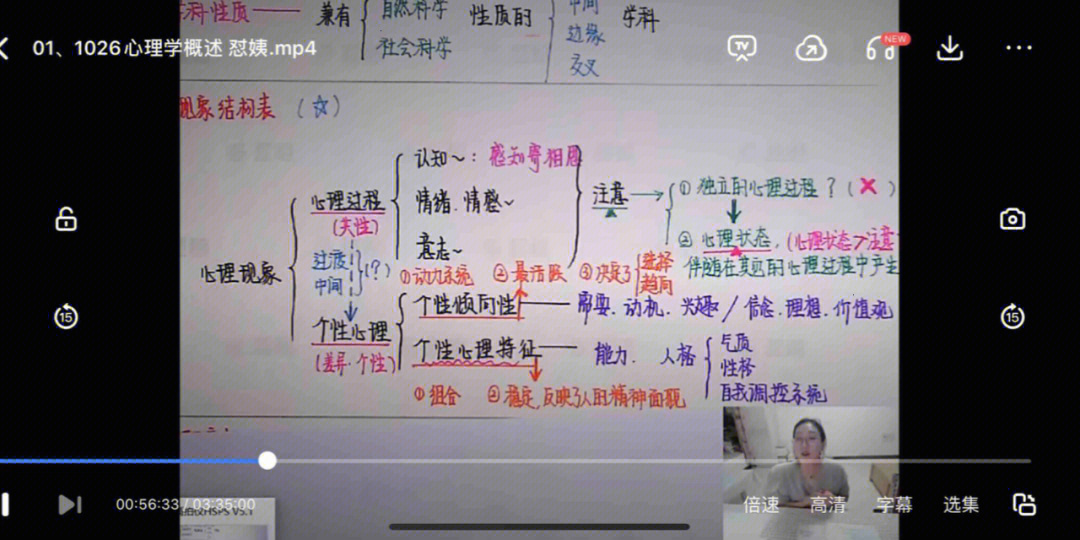 学科性质—— 兼有 自然科学 社会科学 性质的 中间 边缘 交叉 学科
01、1026心理学概述 怼姨.mp4
NEW
现象结构表 (☆)
心理现象
心理过程
(共性)
过渡
中间
(?)
个性心理
(差异·个性)
认知~：感知寄相思
情绪.情感~
意志~
注意
① 独立的心理过程？(×)
② 心理状态.(心理状态>注意
伴随在其他的心理过程中产生
①动力系统 ②最活跃 ③决定了 选择 趋向
个性倾向性—— 需要.动机.兴趣/信念.理想.价值观
个性心理特征—— 能力. 人格 气质 性格 自我调控系统
①组合 ②稳定,反映了人的精神面貌
15
15
00:56:33 / 03:35:00
倍速 高清 字幕 选集